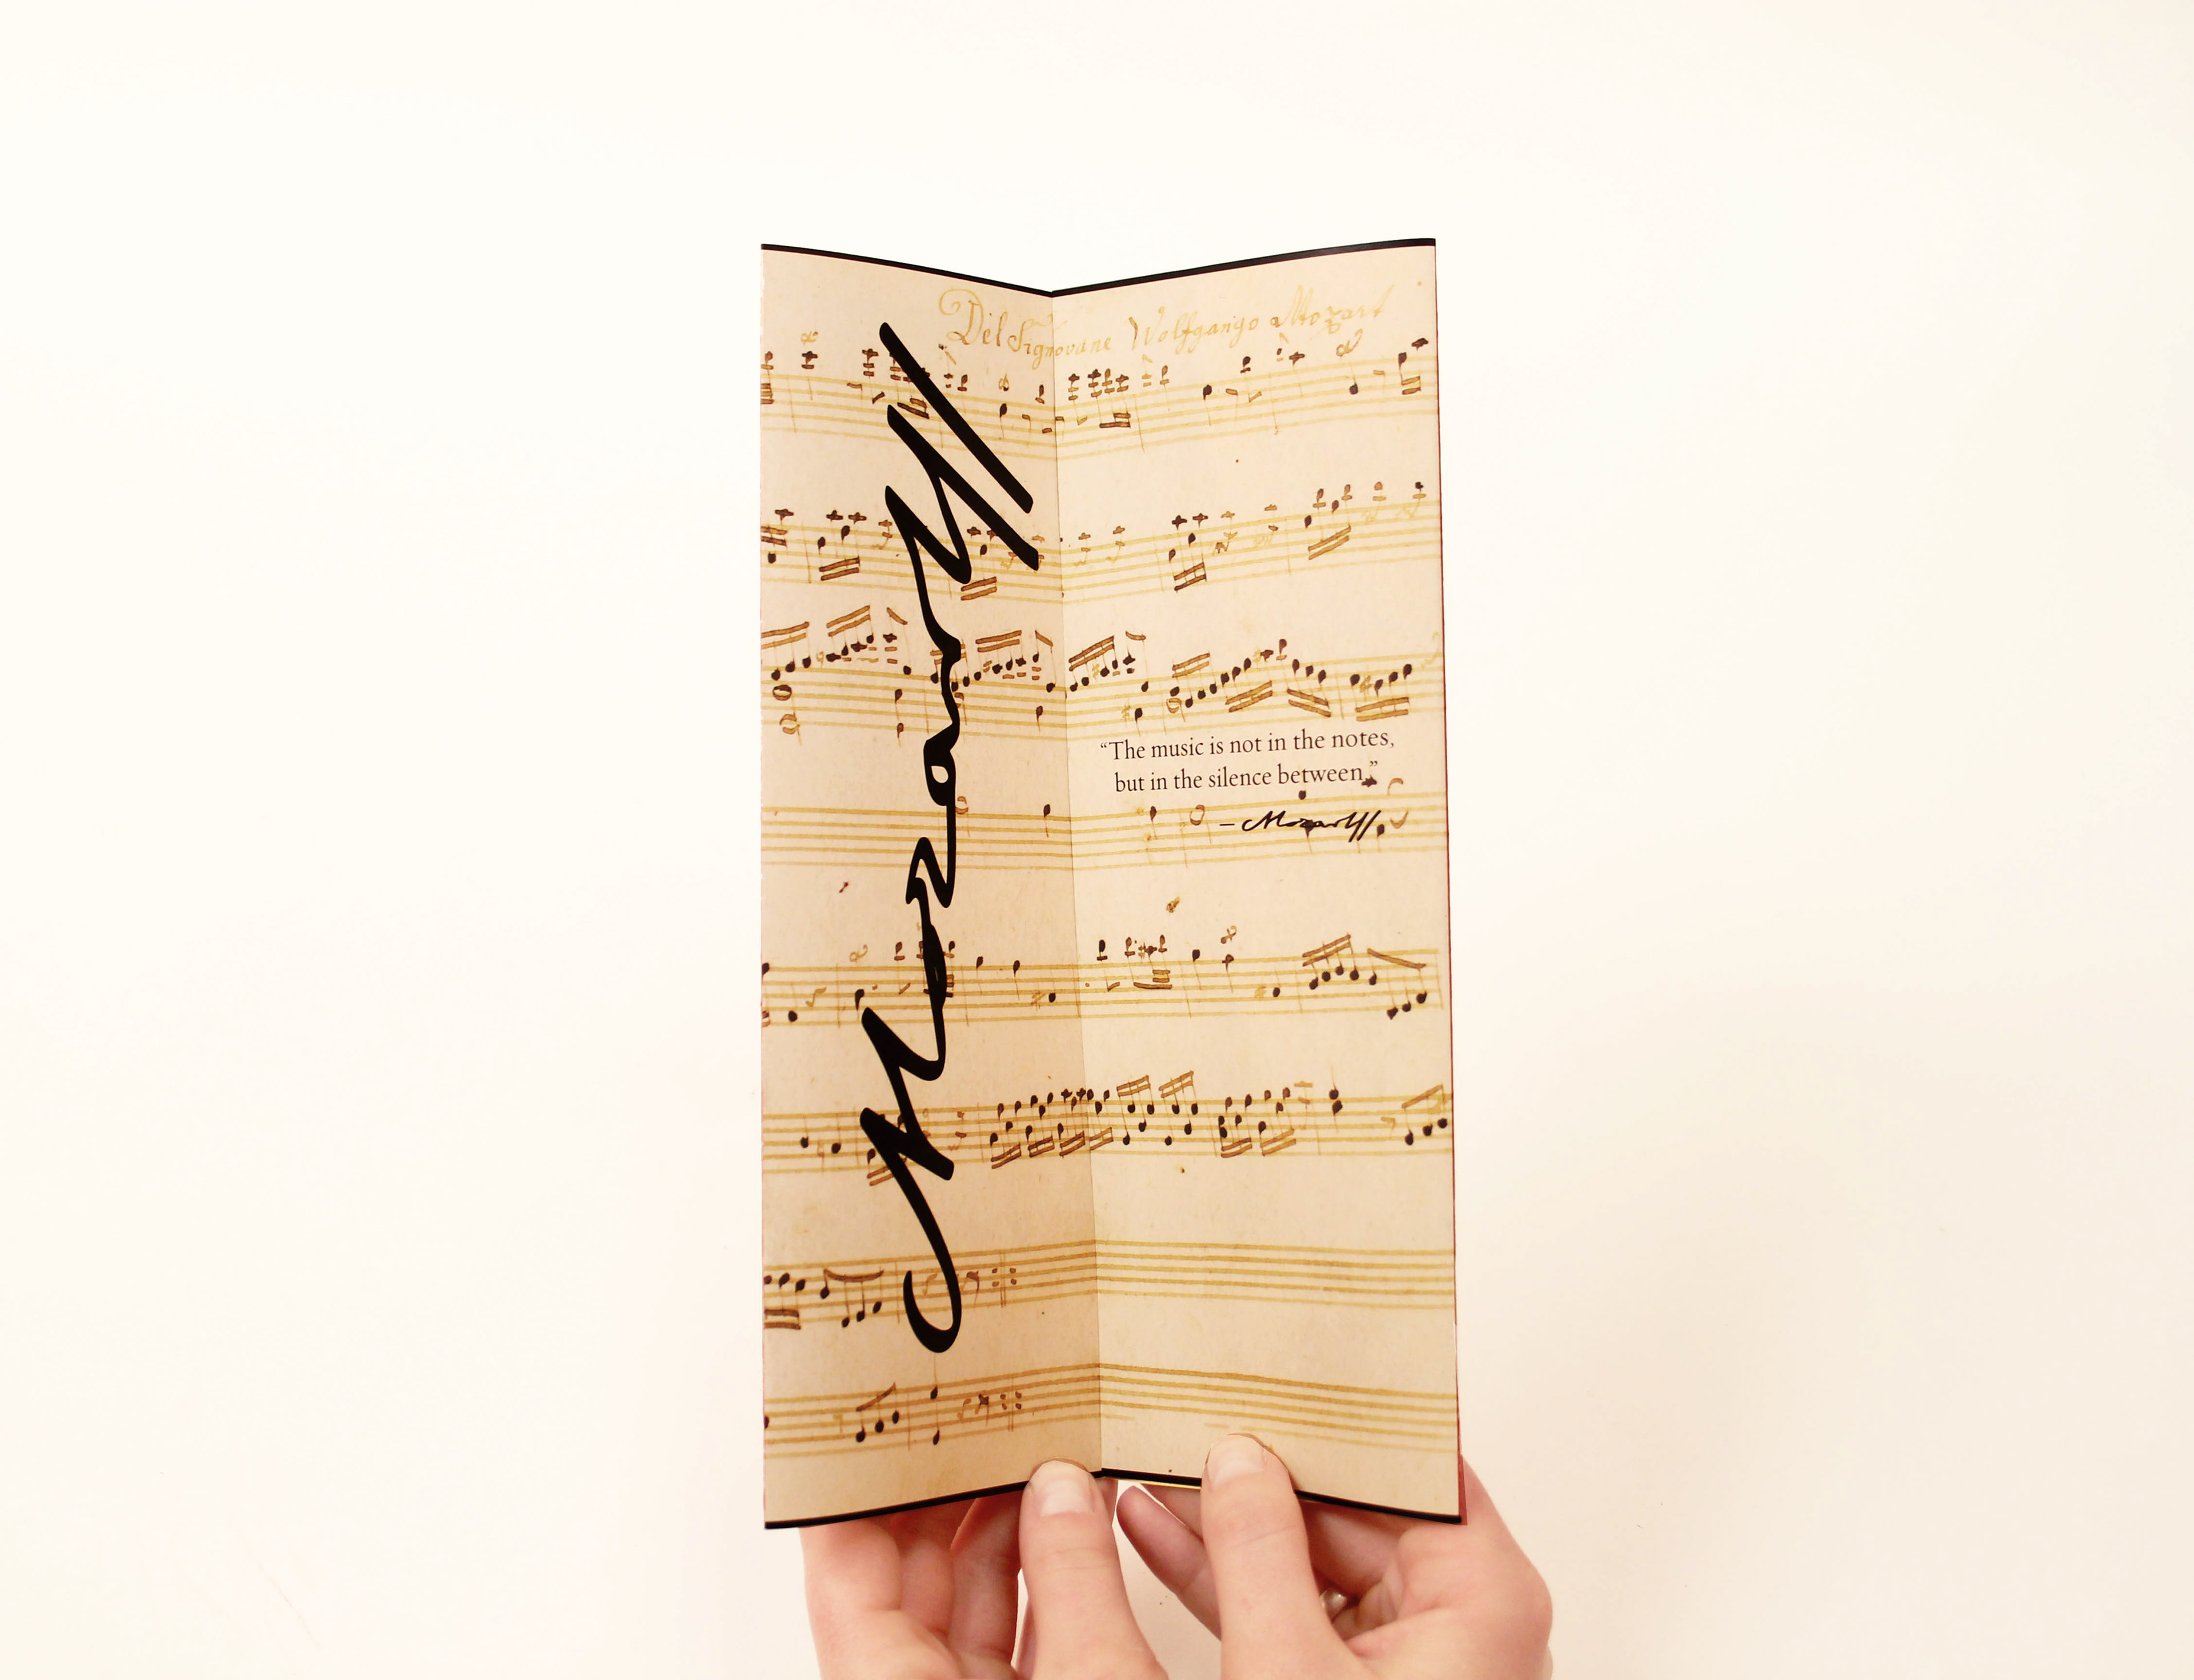 Del Sigñovane Wolfgango Mozart
Mozart
“The music is not in the notes,
but in the silence between.”
– Mozart